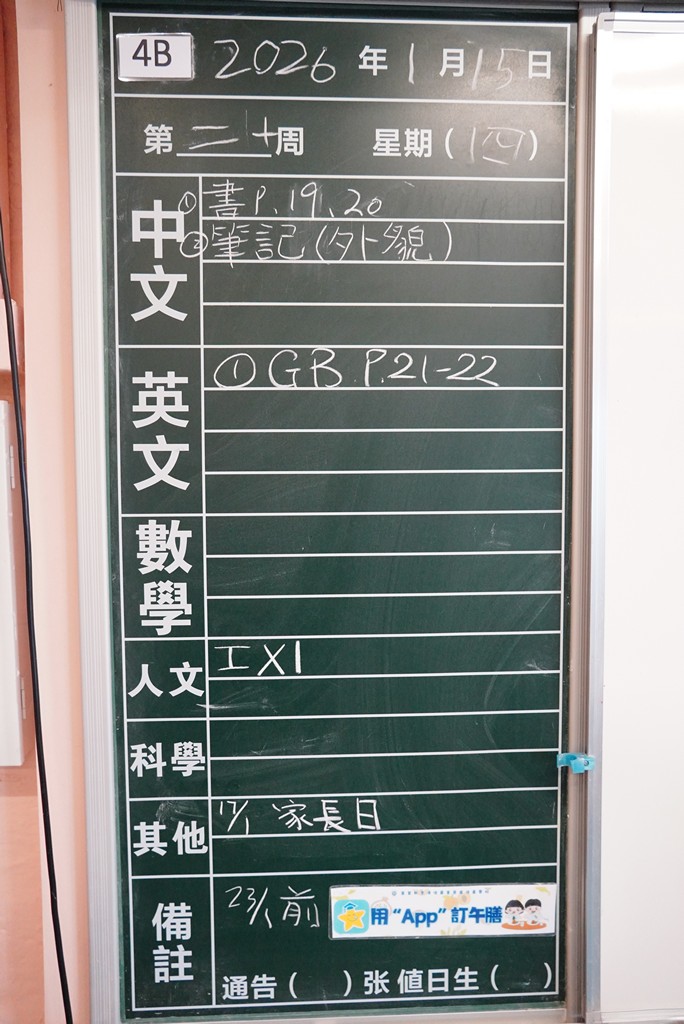 4B 2026 年 1 月 15 日
第 二十 周 星期 (四)
中文
① 書 P. 19, 20
② 筆記 (外貌)
英文
① GB P.21-22
數學
人文
工 X 1
科學
其他
17/1 家長日
備註
23/1 前
用 “App” 訂午膳
通告 ( ) 张 值日生 ( )